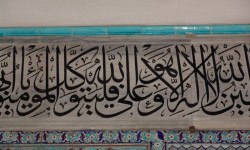 الله لا إله إلا هو وعلى الله فليتوكل المؤمنون